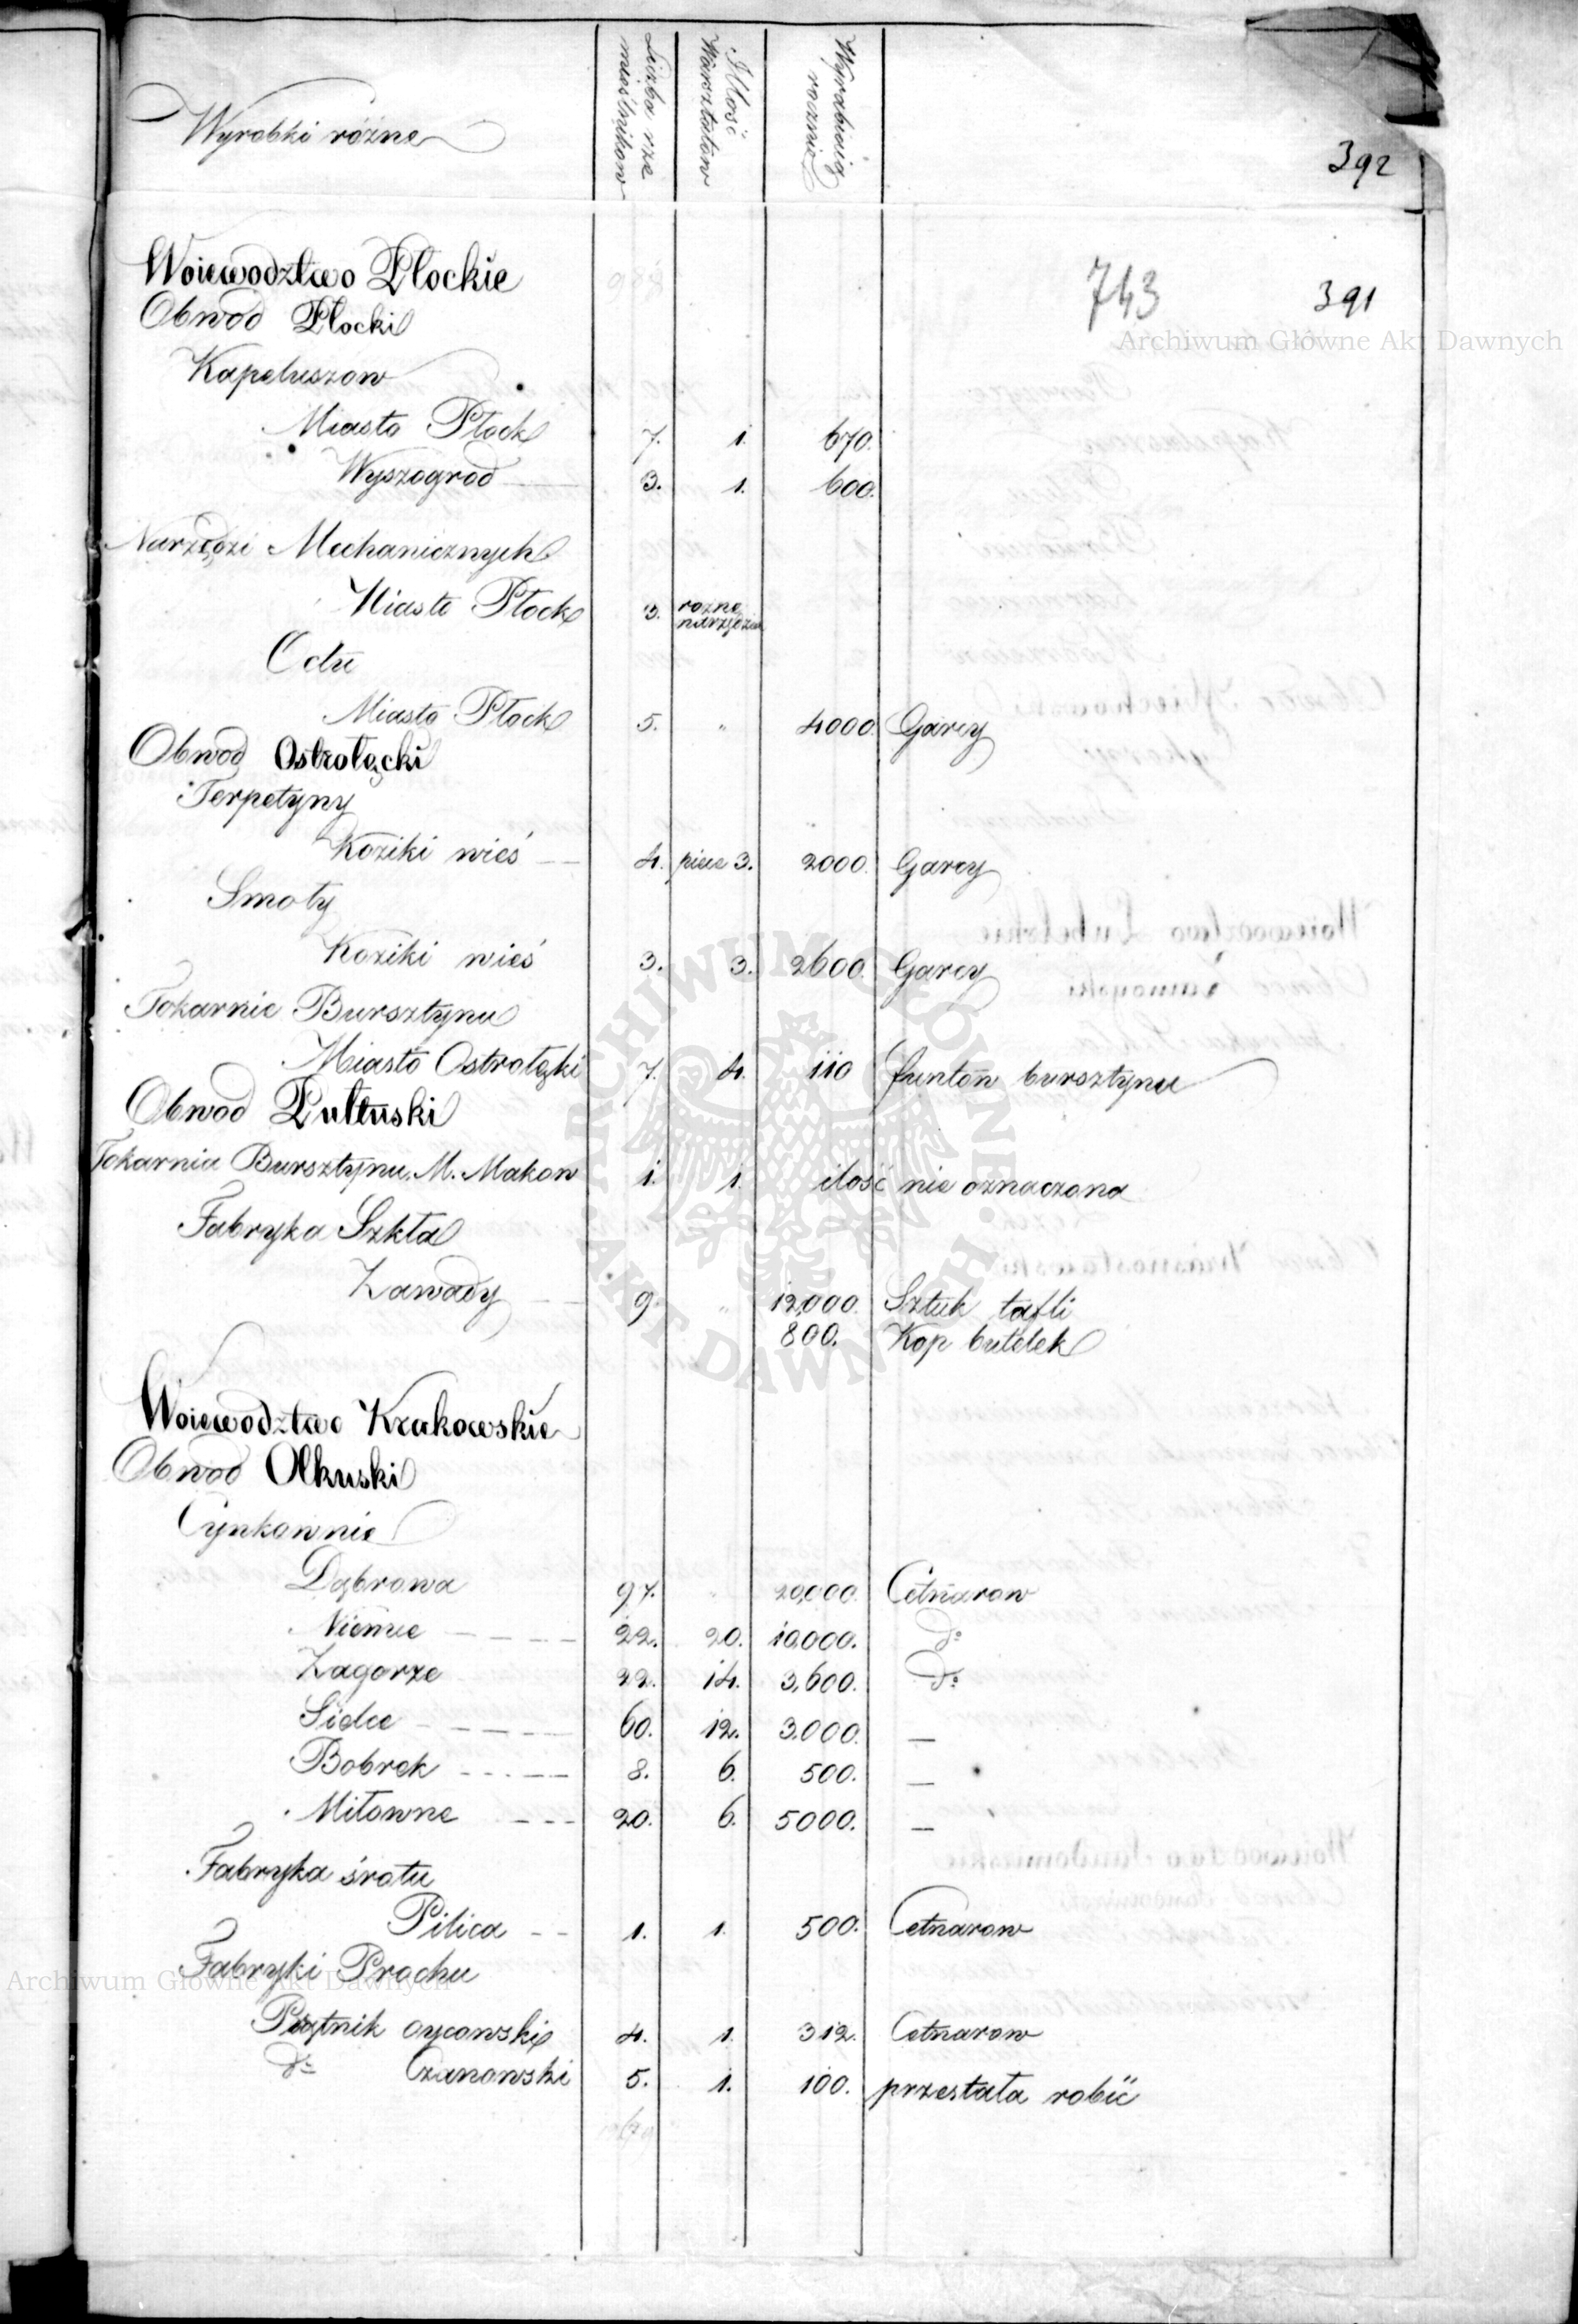 Wyrobki różne
Liczba rze
mieślnikow
Ilość
Warsztatow
Wyrabiaią
rocznie
392
Woiewodztwo Płockie
743
391
Obwod Płocki
Archiwum Główne Akt Dawnych
Kapeluszow
Miasto Płock 7. 1. 670.
Wyszogrod 3. 1. 600.
Narzędzi Mechanicznych
Miasto Płock 3. rozne
narzędzia
Octu
Miasto Płock 5. " 4000 Garcy
Obwod Ostrołęcki
Terpetyny
Koziki wieś 4. piece 3. 2000. Garcy
Smoły
Koziki wieś 3. 3. 2600. Garcy
Tokarnie Bursztynu
Miasto Ostrołęki 7. 4. 110 funtōn bursztynu
Obwod Pułtuski
Tokarnia Bursztynu. M. Makow 1. 1. ilość nie oznaczona
Fabryka Szkła
Zawady 9. " 12,000. Sztuk tafli
800. Kop butelek
Woiewodztwo Krakowskie
Obwod Olkuski
Cynkownie
Dąbrowa 97. " 20,000. Cetnarow
Niemce 22. 20. 10,000. do
Zagorze 22. 14. 3,600. do
Sielce 60. 12. 3.000. —
Bobrek 8. 6. 500. —
Miłowne 20. 6. 5000. —
Fabryka śrotu
Pilica 1. 1. 500. Cetnarow
Fabryki Prochu
Archiwum Główne Akt Dawnych
oycowski 4. 1. 312. Cetnarow
do Czanowski 5. 1. 100. przestała robić
ARCHIWUM GŁÓWNE · AKT DAWNYCH ·